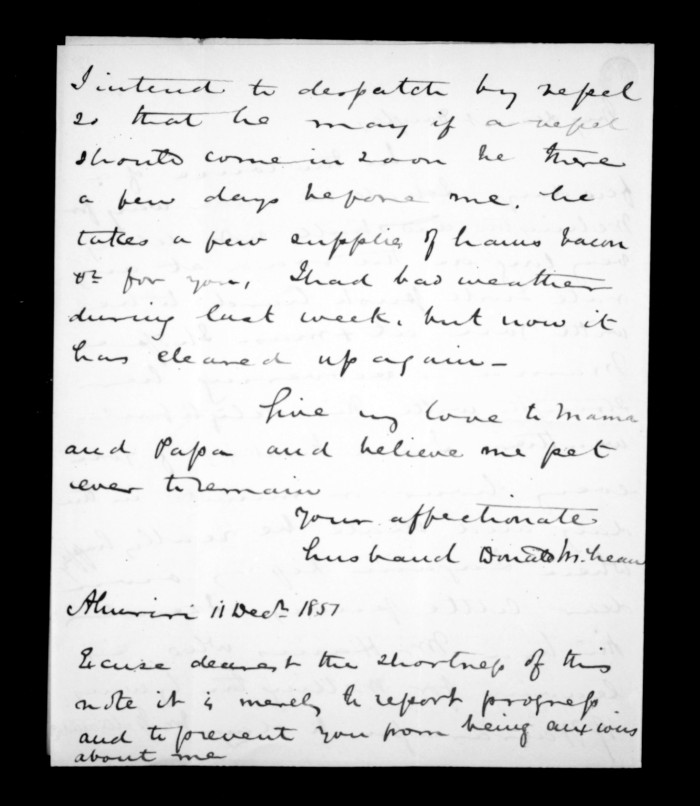 I intend to despatch by vessel
so that he may if a vessel
should come in soon be there
a few days before me. he
takes a few supplies of hams bacon
&c for you, I had bad weather
during last week. but now it
has cleared up again –
Give my love to Mama
and Papa and believe me pet
ever to remain
Your affectionate
husband Donald McLean
Ahuriri 11 Decr 1851
Excuse dearest the shortness of this
note it is merely to report progress
and to prevent you from being anxious
about me